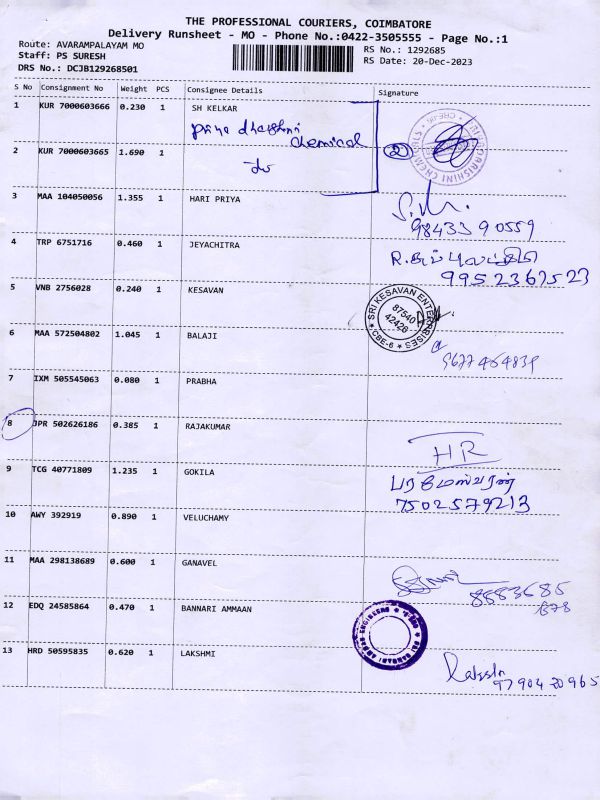 THE PROFESSIONAL COURIERS, COIMBATORE
Delivery Runsheet - MO - Phone No.:0422-3505555 - Page No.:1
Route: AVARAMPALAYAM MO RS No.: 1292685
Staff: PS SURESH RS Date: 20-Dec-2023
DRS No.: DCJB129268501
S No Consignment No Weight PCS Consignee Details Signature
1 KUR 7000603666 0.230 1 SH KELKAR
Priya dharshini
chemical
2 KUR 7000603665 1.690 1
2
3 MAA 104050056 1.355 1 HARI PRIYA
9843390559
4 TRP 6751716 0.460 1 JEYACHITRA
9952367523
5 VNB 2756028 0.240 1 KESAVAN
SRI KESAVAN ENTERPRISES
87540
42426
CBE-6
6 MAA 572504802 1.045 1 BALAJI
9677464839
7 IXM 505545063 0.080 1 PRABHA
8 JPR 502626186 0.385 1 RAJAKUMAR
HR
9 TCG 40771809 1.235 1 GOKILA
பரமேஸ்வரன்
7502579213
10 AWY 392919 0.890 1 VELUCHAMY
11 MAA 298138689 0.600 1 GANAVEL
8883685
878
12 EDQ 24585864 0.470 1 BANNARI AMMAAN
13 HRD 50595835 0.620 1 LAKSHMI
9790420965